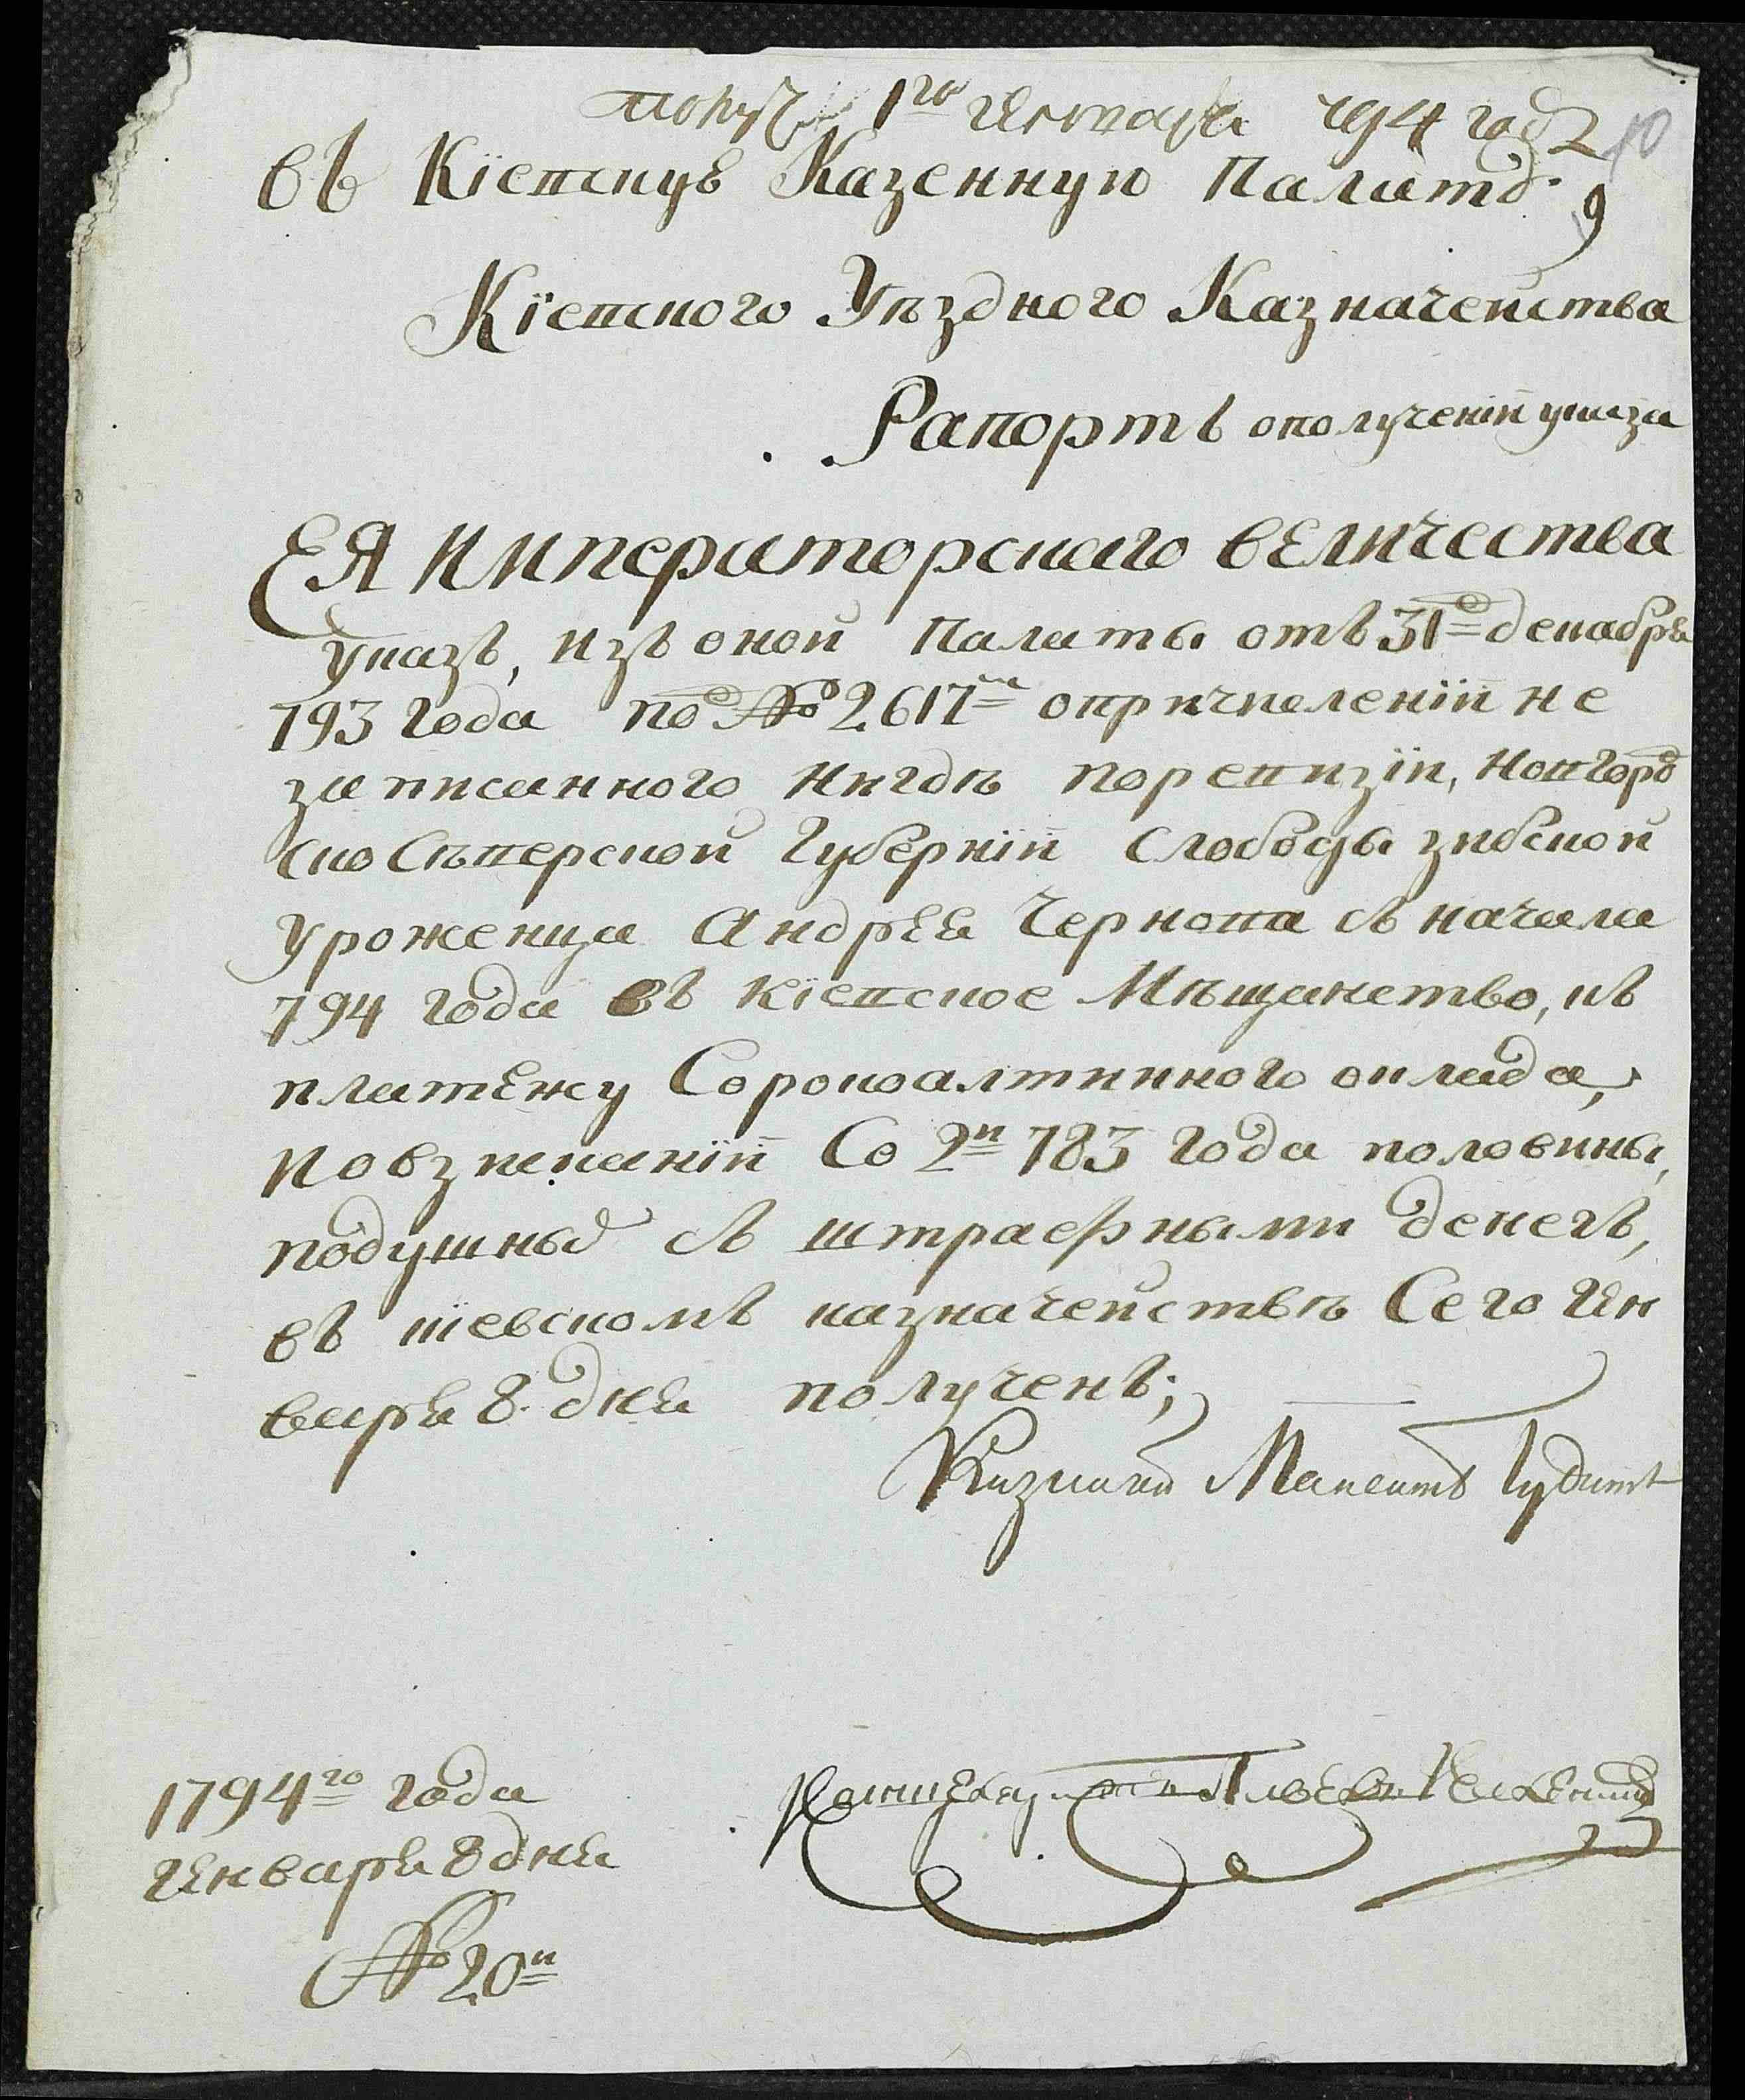 1го Генваря 794 год
10
въ Кіевскую Казенную Палату
9
Кіевского Уѣздного Казначейства
Рапортъ ополученіи указа
ЕЯ ИМператорскаго вЕличества
указъ, изъ оной Палаты отъ 31го декабря
793 года по № 2617м опричислении не
записанного нигдѣ поревизіи, Новгород
ско Сѣверской Губерніи Слободы зибской
уроженца Андрея Чернова съ начала
794 года въ кіевское Мѣщанство, къ
платежу Сорокоалтинного оклада,
повзысканіи Со 2й 783 года половины,
подушных съ штрафными денегъ,
въ кіевскомъ казначействѣ Сего Ген
варя 8 дня полученъ;
Казначей
1794го года
Генваря 8 дня
№ 20й